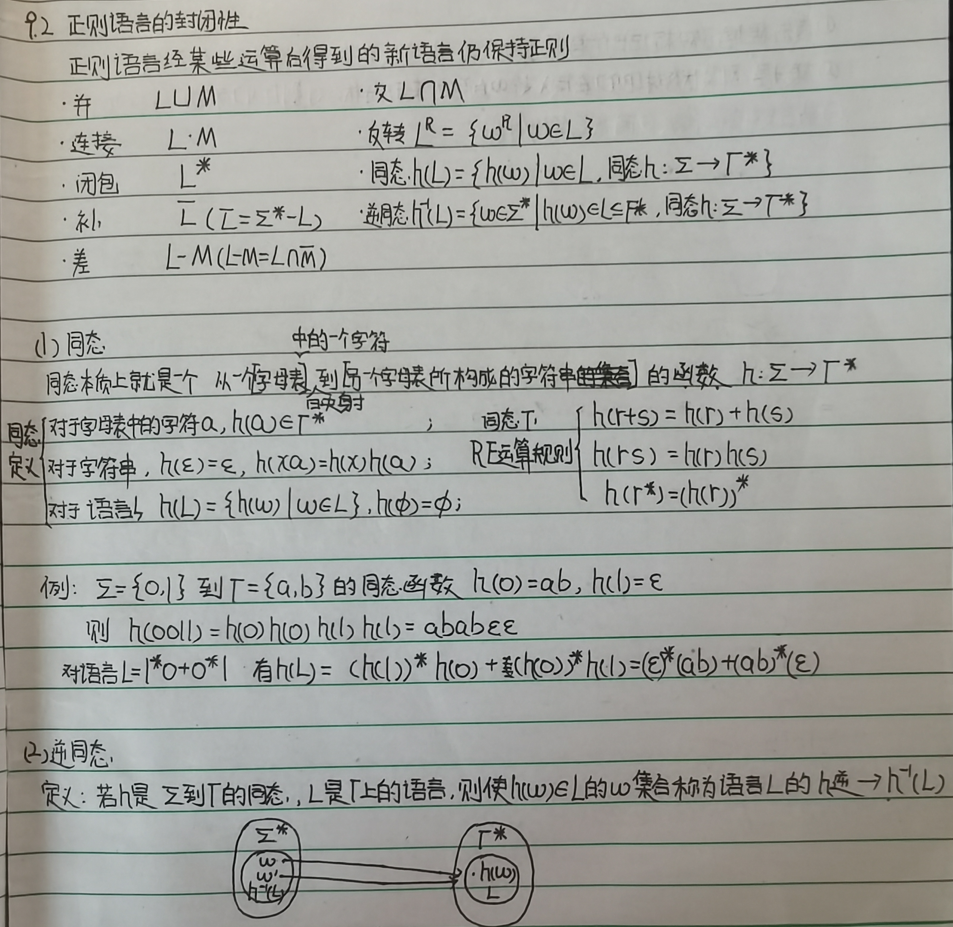 9.2 正则语言的封闭性
正则语言经某些运算后得到的新语言仍保持正则
·并 L∪M ·交 L∩M
·连接 L·M ·反转 L^R = {ω^R|ω∈L}
·闭包 L* ·同态 h(L)={h(ω)|ω∈L, 同态h: Σ→Γ*}
·补 L̅ (L̅=Σ*-L) ·逆同态 h⁻¹(L)={ω∈Σ*|h(ω)∈L⊆Γ*, 同态h: Σ→Γ*}
·差 L-M(L-M=L∩M̅)
(1)同态
中的一个字符
同态本质上就是一个 从一个[字母表]到[另一个字母表所构成的字符串] 的函数 h: Σ→Γ*
同态定义
对于字母表中的字符a, h(a)∈Γ* ;
对于字符串, h(ε)=ε, h(xa)=h(x)h(a);
对于语言L h(L)={h(ω)|ω∈L}, h(∅)=∅;
同态下RE运算规则
h(r+s)=h(r)+h(s)
h(rs)=h(r)h(s)
h(r*)=(h(r))*
例: Σ={0,1} 到 Γ={a,b} 的同态函数 h(0)=ab, h(1)=ε
则 h(0011)=h(0)h(0)h(1)h(1)=ababεε
对语言L=1*0+0*1 有h(L)= (h(1))*h(0)+(h(0))*h(1)=(ε)*(ab)+(ab)*(ε)
(2)逆同态
定义: 若h是 Σ到Γ的同态, L是Γ上的语言, 则使h(ω)∈L的ω集合称为语言L的 h逆→h⁻¹(L)
Σ* Γ*
ω
ω' ·h(ω)
h⁻¹(L) L